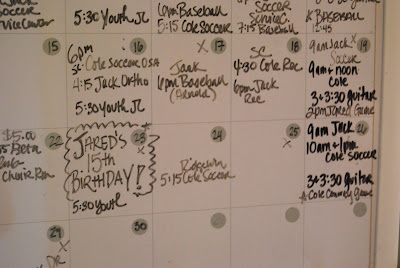 Soccer
Service Center
5:30 Youth JC
6pm Baseball
5:15 Cole Soccer
Soccer
Service C.
7:15 Baseball
Baseball
12:45
15
16
6pm
Cole Soccer OSA
4:15 Jack Ortho
5:30 Youth JC
x 17
Jack
6pm Baseball
(Arnold)
18
SC
4:30 Cole Rec
6pm Jack
Rec
19
9am Jack x
Soccer
9am & noon
Cole
3 & 3:30 guitar
2pm Jared Game
22
$5.00
Choir Rm
23
JARED'S
15th
BIRTHDAY!
5:30 Youth
24
5:15 Cole Soccer
25
x
26
9am Jack
10am & 1pm
Cole Soccer
3 & 3:30 guitar
Game
29
x
Dr
30